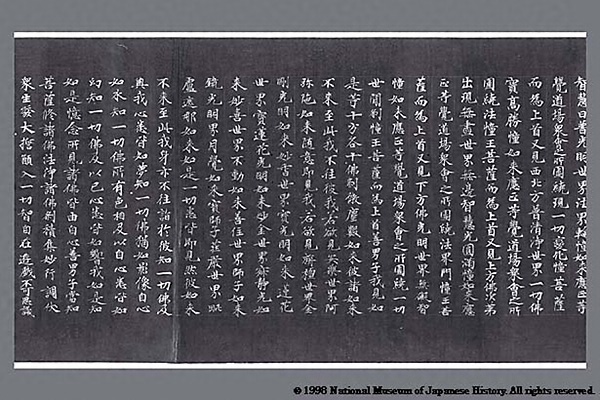 智慧日普光明世界法界輪幢如來應正等
覺道場衆會之所圍繞一切變化幢菩薩
而為上首又見西北方普清淨世界一切佛
寶高勝幢如來應正等覺道場衆會之所
圍繞法幢王菩薩而為上首又見上方佛次第
出現無盡世界無邊智慧光圓滿幢如來應
正等覺道場衆會之所圍繞法界門幢王菩
薩而為上首又見下方佛光明世界無礙智
幢如來應正等覺道場衆會之所圍繞一切
世間剎幢王菩薩而為上首善男子我見如
是等十方各十佛剎微塵數如來彼諸如來
不來至此我不往彼我若欲見安樂世界阿
弥陀如來随意即見我若欲見栴檀世界金
剛光明如來妙香世界寶光明如來蓮花
世界寶蓮花光明如來妙金世界寂靜光如
來妙喜世界不動如來善住世界師子如來
鏡光明世界月覺如來寶師子莊嚴世界毗
盧遮那如來如是一切悉皆即見然彼如來
不來至此我身亦不往詣於彼知一切佛及
與我心悉皆如夢知一切佛猶如影像自心
如水知一切佛所有色相及以自心悉皆如
幻知一切佛及以己心悉皆如響我如是知
如是憶念所見諸佛皆由自心善男子當知
菩薩修諸佛法淨諸佛剎積集妙行調伏
衆生發大誓願入一切智自在遊戲不可思議
© 1998 National Museum of Japanese History. All rights reserved.